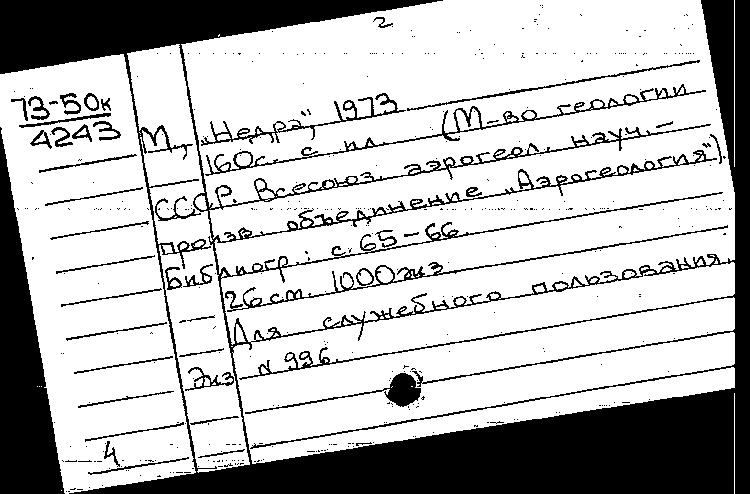 2
73-50к
4243
М., „Недра", 1973
160с. с ил. (М-во геологии
СССР. Всесоюз. аэрогеол. науч.-
произв. объединение „Аэрогеология").
Библиогр.: с. 65-66.
26 см. 1000 экз.
Для служебного пользования.
Экз. N 996.
4